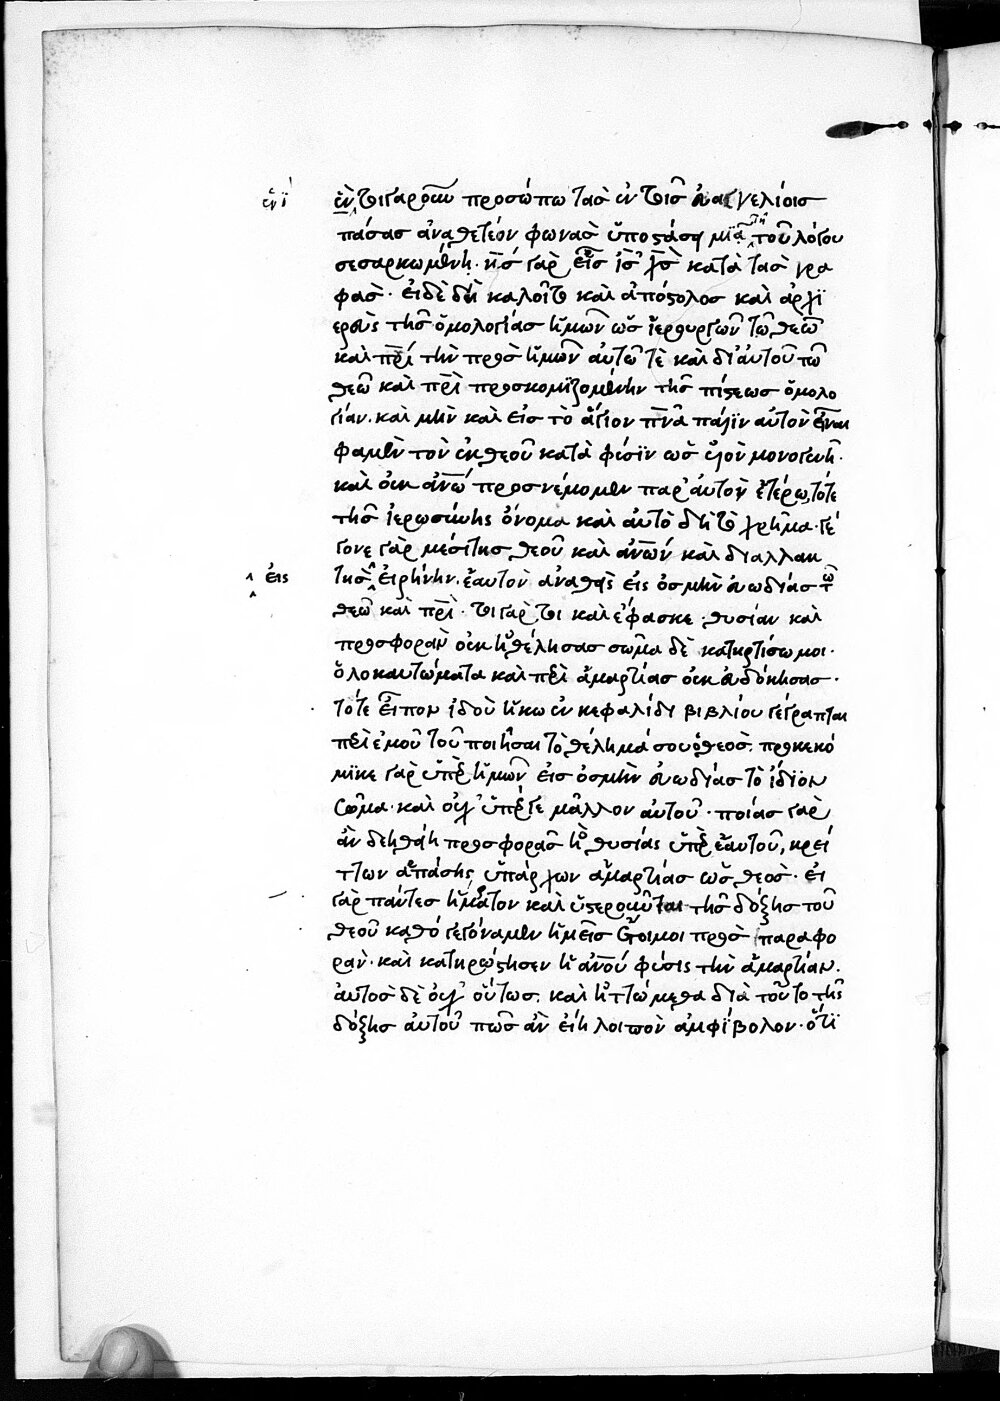 ἑνὶ
ἓν τοιγαροῦν προσώπω τὰσ ἐν τοῖσ εὐαγγελίοισ
πάσασ ἀναθετέον φωνασ ὑποστάσει μιᾶ τῆ τοῦ λόγου
σεσαρκωμένη· κ̅σ̅ γὰρ εἷσ ι̅σ̅ χ̅σ̅ κατὰ τὰσ γρα
φασ· εἰ δὲ δὴ καλοῖτο καὶ ἀπόστολοσ καὶ ἀρχι
ερεὺς τῆσ ὁμολογίασ ἡμῶν ὡσ ἱερουργῶν τῶ θεῶ
καὶ π̅ρ̅ὶ τὴν προσ ἡμῶν αὐτῶ τὲ καὶ δι᾽ αὐτοῦ τῶ
θεῶ καὶ π̅ρ̅ὶ προσκομιζομένην τῆσ πίστεωσ ὁμολο
γίαν. καὶ μὴν καὶ εἰσ τὸ ἅγιον π̅ν̅α̅ πάλιν αὐτὸν εἶναι
φαμὲν τὸν ἐκ θεοῦ κατὰ φύσιν ὡσ υἱὸν μονογενῆ·
καὶ οὐκ ἀν̅ω̅ προσνέμομεν παρ᾽ αὐτὸν ἑτέρω, τό τε
τῆσ ἱερωσύνης ὄνομα καὶ αὐτὸ δὴ τὸ χρῆμα· γέ
γονε γὰρ μεσίτησ θεοῦ καὶ ἀν̅ω̅ν καὶ διαλλακ
εἰς
τὴσ εἰρήνην. ἑαυτὸν ἀναθεὶς εἰς ὀσμὴν εὐωδίασ τῶ
θεῶ καὶ π̅ρ̅ὶ· τοιγάρτοι καὶ ἔφασκε· θυσίαν καὶ
προσφορὰν οὐκ ἠθέλησασ σῶμα δὲ κατηρτίσω μοι·
ὁλοκαυτώματα καὶ περὶ ἁμαρτίασ οὐκ εὐδόκησασ·
τότε εἶπον ἰδοὺ ἥκω ἐν κεφαλίδι βιβλίου γέγραπται
περὶ ἐμοῦ τοῦ ποιῆσαι τὸ θέλημά σου ὁ θεοσ. προκεκό
μικε γὰρ ὑπὲρ ἡμῶν εἰσ ὀσμὴν εὐωδίασ τὸ ἴδιον
σῶμα· καὶ οὐχ ὑπέρ γε μᾶλλον αὐτοῦ· ποίασ γὰρ
ἂν δεηθείη προσφορασ ἢ θυσίας ὑπὲρ ἑαυτοῦ, κρεί
ττων ἁπάσης ὑπάρχων ἁμαρτίασ ὡσ θεοσ· εἰ
γὰρ πάντεσ ἥμαρτον καὶ ὑστεροῦνται τῆσ δόξησ τοῦ
θεοῦ καθό γεγόναμεν ἡμεῖσ ἕτοιμοι προσ παραφο
ράν· καὶ κατηρρώστησεν ἡ ἀν̅ο̅ύ φύσις τὴν ἁμαρτίαν.
αὐτοσ δὲ οὐχ οὕτωσ. καὶ ἡττώμεθα διὰ τοῦτο τῆς
δόξησ αὐτοῦ πῶσ ἂν εἴη λοιπὸν ἀμφίβολον· ὅτι